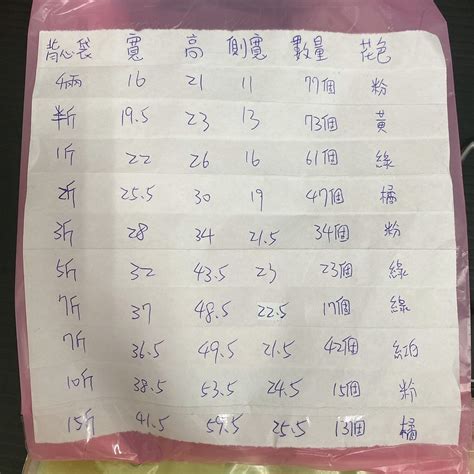 背心袋 寬 高 側寬 數量 花色
4兩 16 21 11 77個 粉
半斤 19.5 23 13 73個 黃
1斤 22 26 16 61個 綠
2斤 25.5 30 19 47個 橘
3斤 28 34 21.5 34個 粉
5斤 32 43.5 23 23個 綠
7斤 37 48.5 22.5 17個 綠
7斤 36.5 49.5 21.5 42個 紅白
10斤 38.5 53.5 24.5 15個 粉
15斤 41.5 59.5 25.5 13個 橘